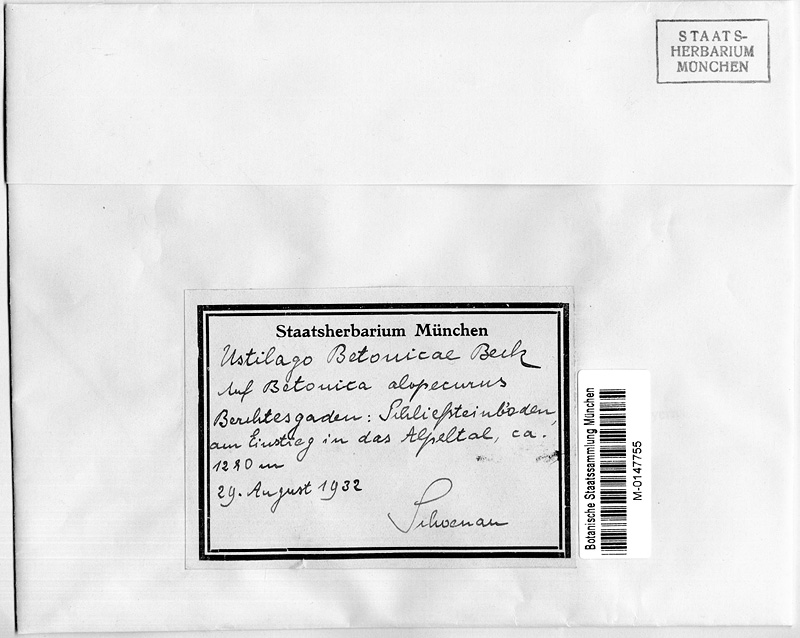 STAATS-
HERBARIUM
MÜNCHEN
Staatsherbarium München
Ustilago Betonicae Beck
Auf Betonica alopecurus
Berchtesgaden: Schließsteinböden,
am Einstieg in das Alpeltal, ca.
1280 m
29. August 1932
Schoenau
Botanische Staatssammlung München
M-0147755